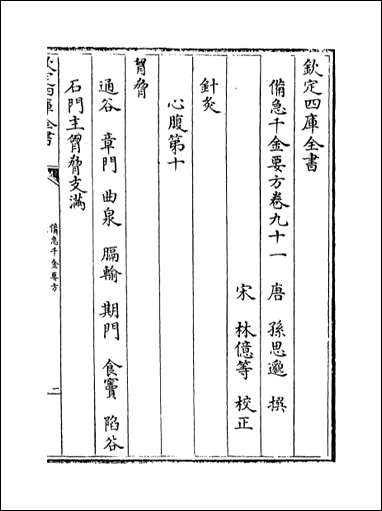 欽定四庫全書
備急千金要方卷九十一
唐 孫思邈 撰
宋 林億等 校正
針灸
心腹第十
胷脅
通谷 章門 曲泉 膈輸 期門 食竇 陷谷
石門主胷脅支滿
欽定四庫全書
備急千金要方